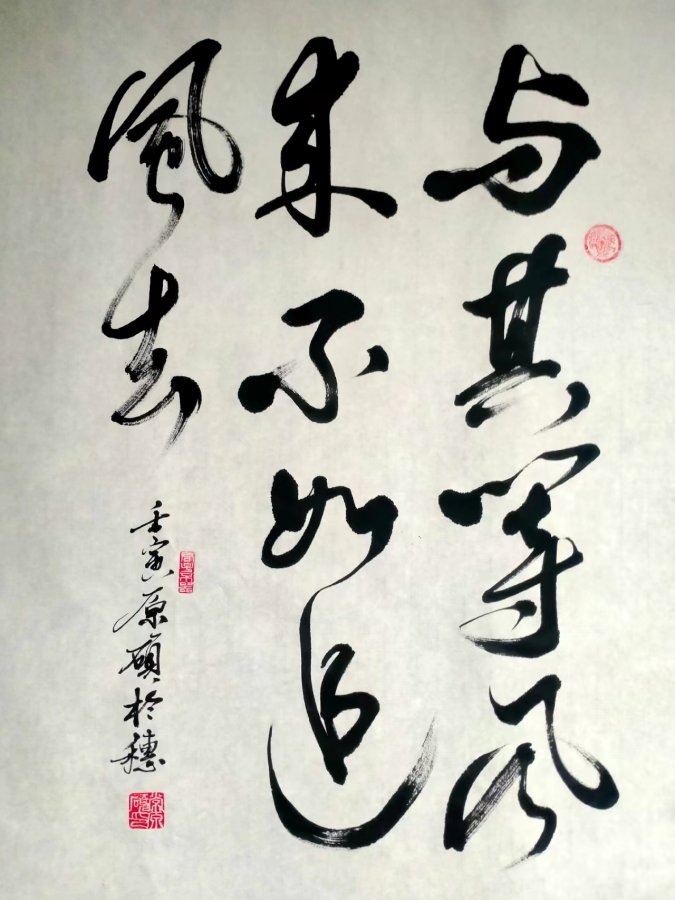 与其等风
来不如追
風去
壬寅原碩於穗